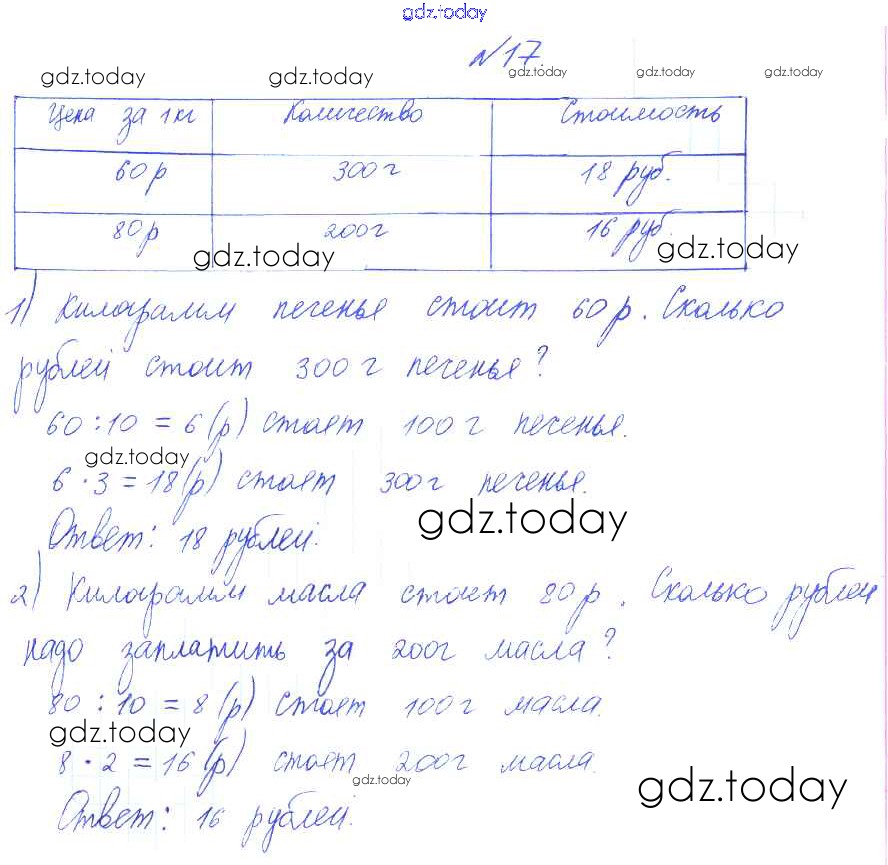 gdz.today
№17.
gdz.today gdz.today gdz.today gdz.today gdz.today
Цена за 1кг Количество Стоимость
60р 300г 18 руб.
80р 200г 16 руб.
gdz.today gdz.today
1) Килограмм печенья стоит 60р. Сколько
рублей стоит 300г печенья?
60:10=6(р) стоит 100г печенья.
gdz.today
6·3=18(р) стоит 300г печенья.
gdz.today
Ответ: 18 рублей.
2) Килограмм масла стоит 80р. Сколько рублей
надо заплатить за 200г масла?
80:10=8(р) стоит 100г масла.
gdz.today
8·2=16(р) стоит 200г масла.
gdz.today gdz.today
Ответ: 16 рублей.